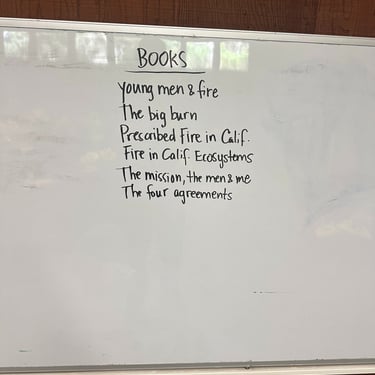 BOOKS
Young men & fire
The big burn
Prescribed Fire in Calif.
Fire in Calif. Ecosystems
The mission, the men & me
The four agreements